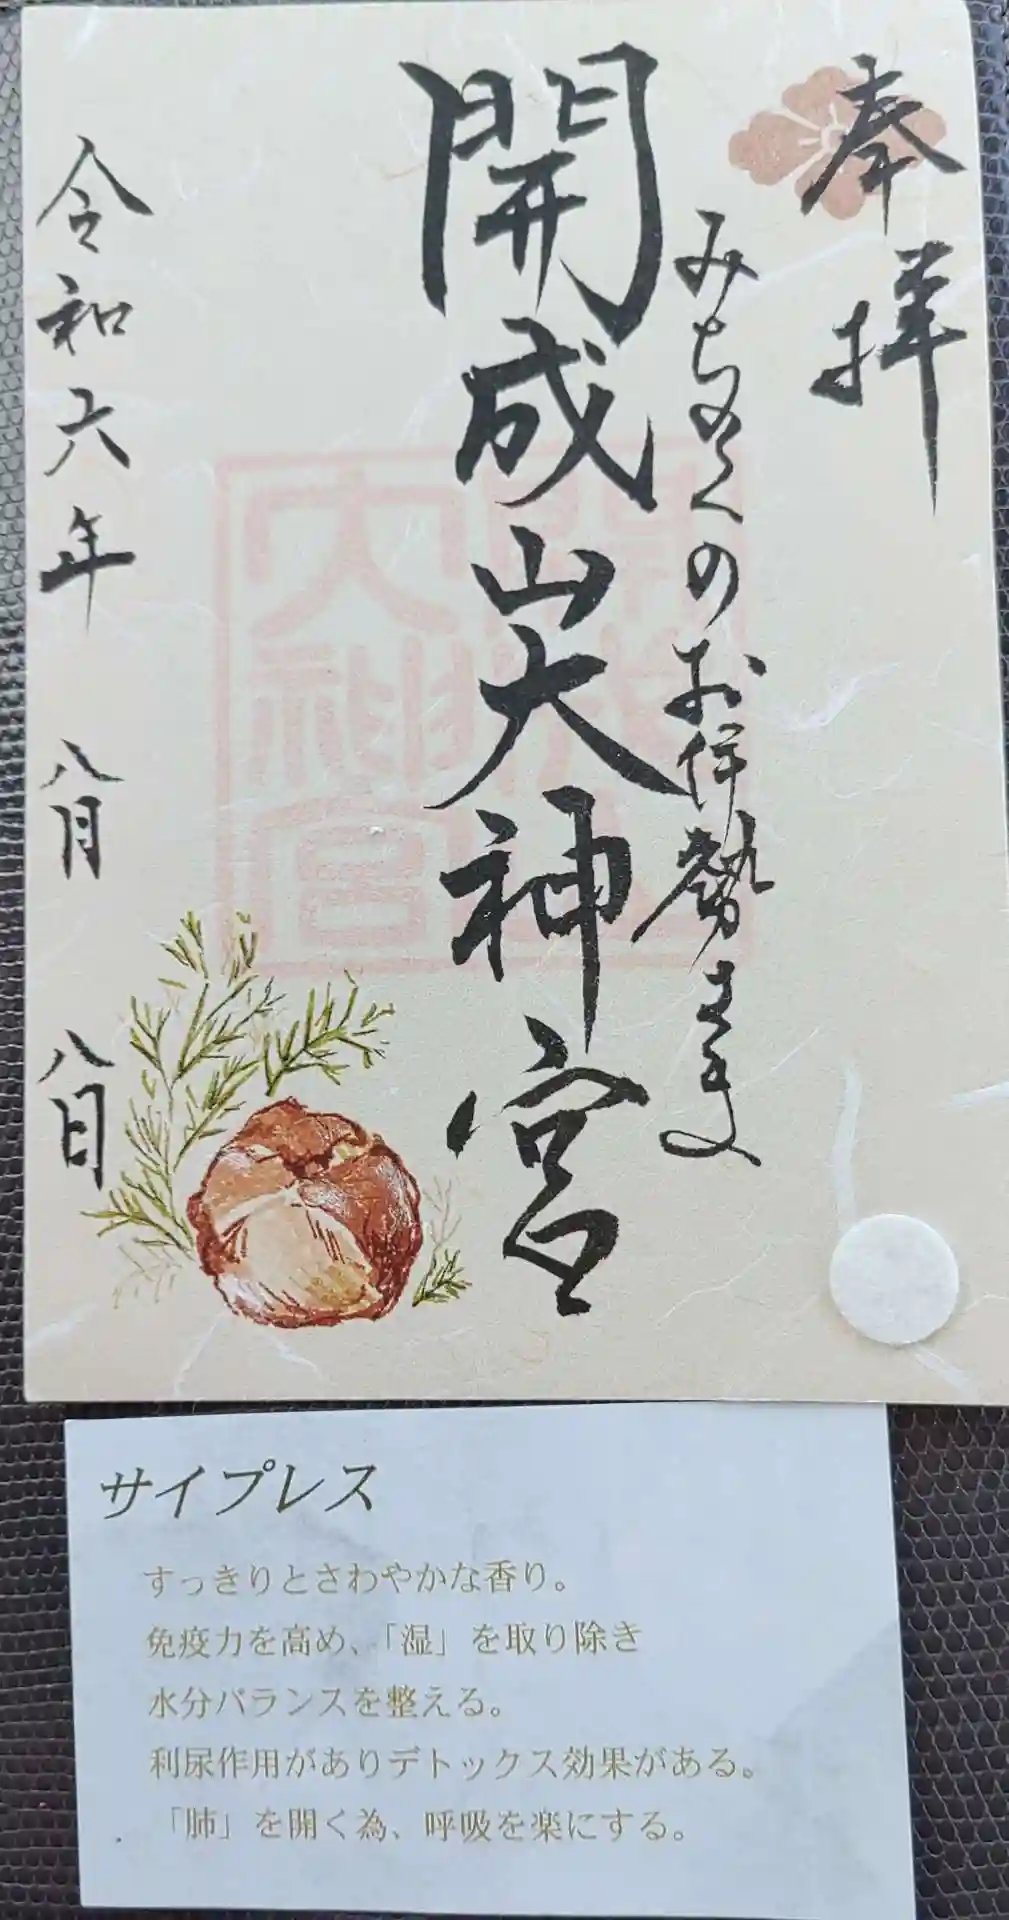 奉拝
みちのくのお伊勢さま
開成山大神宮
令和六年 八月 八日
開成山大神宮
サイプレス
すっきりとさわやかな香り。
免疫力を高め、「湿」を取り除き
水分バランスを整える。
利尿作用がありデトックス効果がある。
「肺」を開く為、呼吸を楽にする。